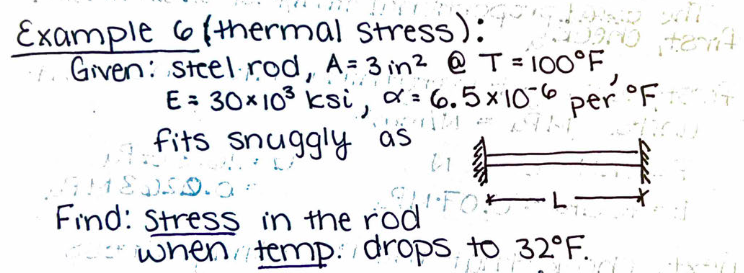 Example 6 (thermal stress):
Given: steel rod, A = 3 in² @ T = 100°F,
E = 30×10³ ksi, α = 6.5×10⁻⁶ per °F
fits snuggly as
L
Find: stress in the rod
when temp. drops to 32°F.